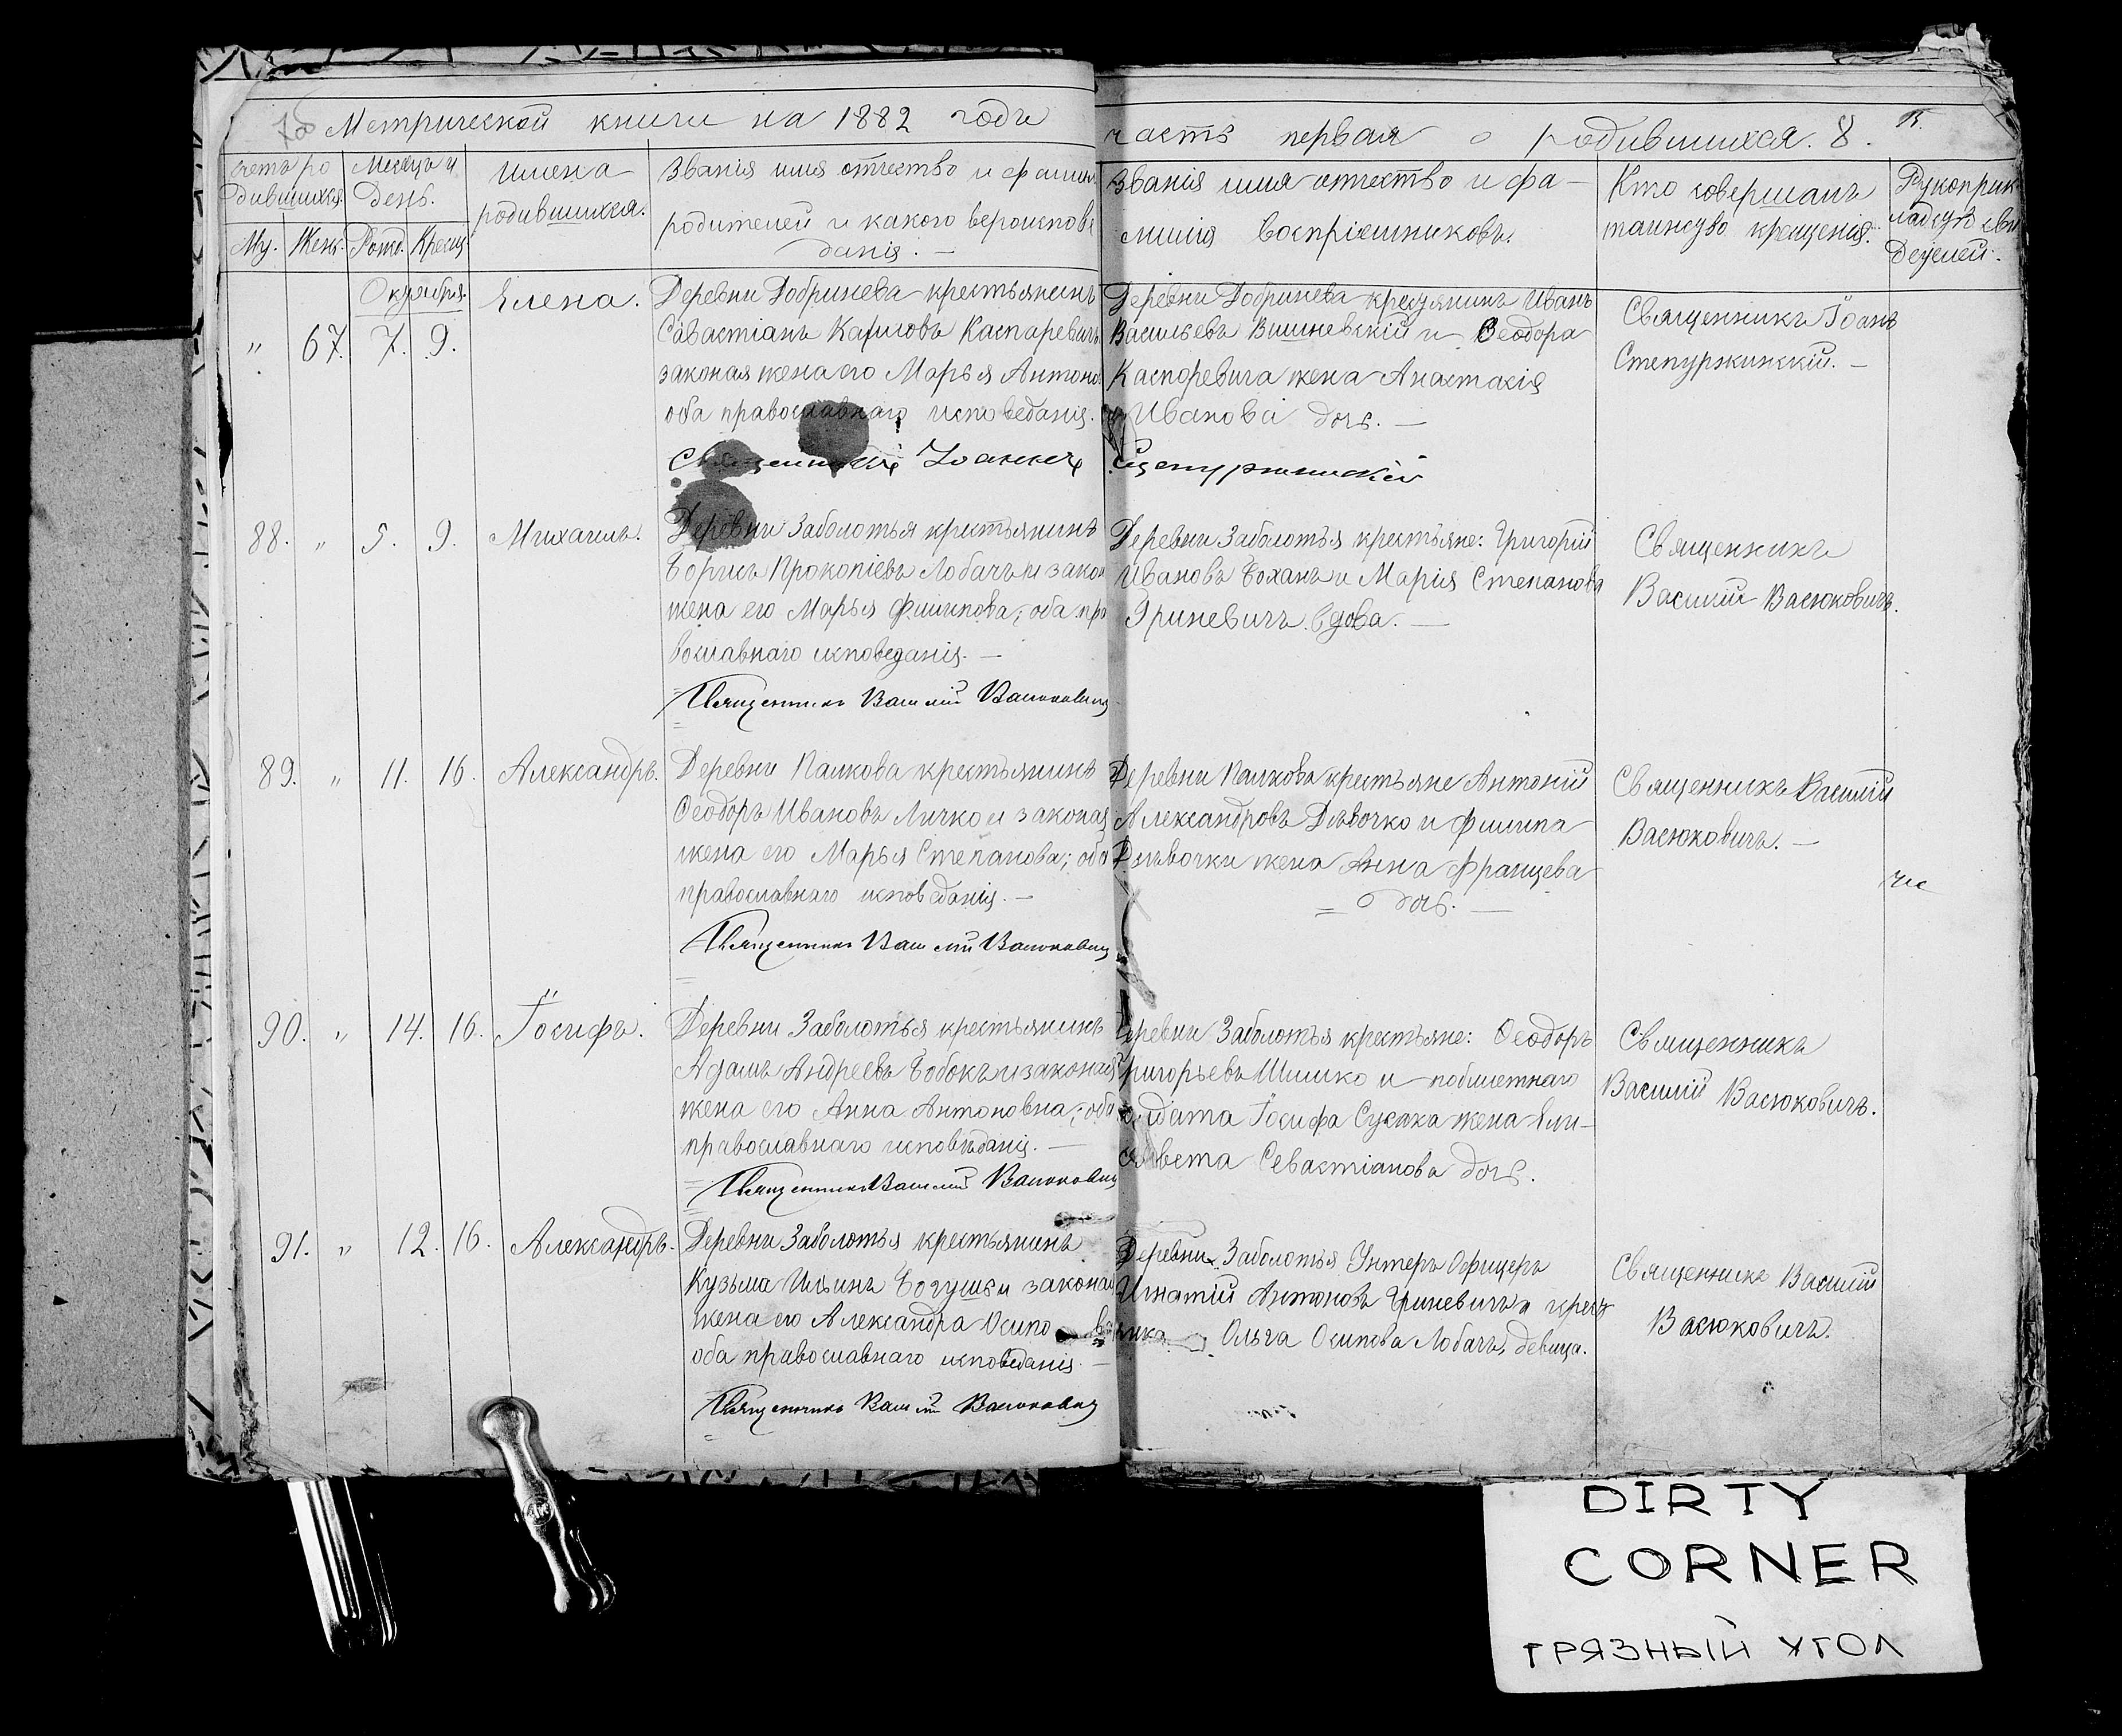 Метрической книги на 1882 годъ часть первая о родившихся. 8.
счетъ ро
дившихся.
Му. Женс.
Месяцъ и
День.
Рожд. Крещ.
имена
родившихся.
Званія имя отчество и фамил
родителей и какого вероиспове
данія. —
Званія имя отчество и фа–
милія воспріемниковъ.
Кто совершалъ
таинство крещенія.
Рукоприк
ладст сви
детелей.
Октября.
" 67. 7. 9.
Елена.
Деревни Добринева крестьянинъ
Савастіанъ Карповъ Каспаревичъ
законая жена его Марья Антоно
оба православнаго исповеданія.
Священникъ Іоаннъ Сцепуржинскій
Деревни Добринева крестянинъ Иванъ
Васильевъ Вишневскій и Ѳеодора
Каспоревича жена Анастасія
Иванова дочь. —
Священникъ Іоанъ
Степуржинскій. —
88. " 5. 9.
Михаилъ.
Деревни Заболотья крестьянинъ
Борисъ Прокопіевъ Лобачъ и закон
жена его Марья Филипова; оба пра
вославнаго исповеданія. —
Священникъ Василій Васюковичъ
Деревни Заболотья крестьяне: Григорій
Ивановъ Боханъ и Марія Степанова
Гриневичъ вдова. —
Священникъ
Василій Васюковичъ.
89. " 11. 16.
Александръ.
Деревни Палкова крестьянинъ
Ѳеодоръ Ивановъ Личко и законая
жена его Марья Степанова; оба
православнаго исповеданія. —
Священникъ Василій Васюковичъ
Деревни Палкова крестьяне Антоній
Александровъ Дѣвочко и Филипа
Дѣвочки жена Анна Францева
= дочь. —
Священникъ Василій
Васюковичъ. —
90. " 14. 16.
Іосифъ.
Деревни Заболотья крестьянинъ
Адамъ Андреевъ Бобокъ и законая
жена его Анна Антоновна; оба
православнаго исповѣданія. —
Священникъ Василій Васюковичъ
Деревни Заболотья крестьяне: Ѳеодоръ
Григорьевъ Шишко и
солдата Іосифа жена Ели–
савета Севастіанова дочь.
Священникъ
Василій Васюковичъ.
91. " 12. 16.
Александръ.
Деревни Заболотья крестьянинъ
Кузьма Ильинъ Богушъ и законая
жена его Александра Осипова
оба православнаго исповеданія. —
Священникъ Василій Васюковичъ
Деревни Заболотья Унтеръ Офицеръ
Игнатій Антоновъ Гриневичъ и крест
янка Ольга Осипова Лобачъ, девица.
Священникъ Василій
Васюковичъ.
DIRTY
CORNER
ГРЯЗНЫЙ УГОЛ